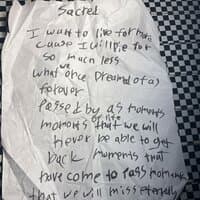 Sacred
I want to live for more
cause I will die for
so much less
what we once Dreamed of as
forever
passed by as moments
moments of life that we will
never be able to get
back moments that
have come to pass
that we will miss eternally